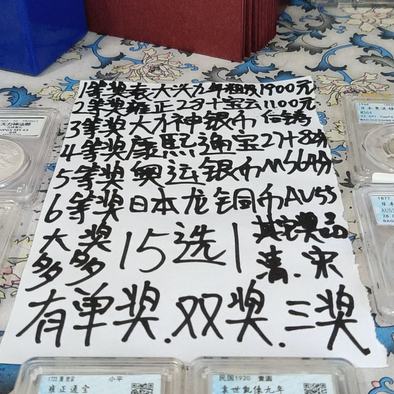 1等奖袁大头九年精发1900元
2等奖雍正27十宝云1100元
3等奖大力神银币
4等奖康熙通宝27+82分
5等奖奥运银币MS69分
6等奖日本龙铜币AU55
大奖多多 15选1 其它奖品清.宋
有单奖.双奖.三奖
小平
雍正通宝
民国1920 壹圆
袁世凯像九年